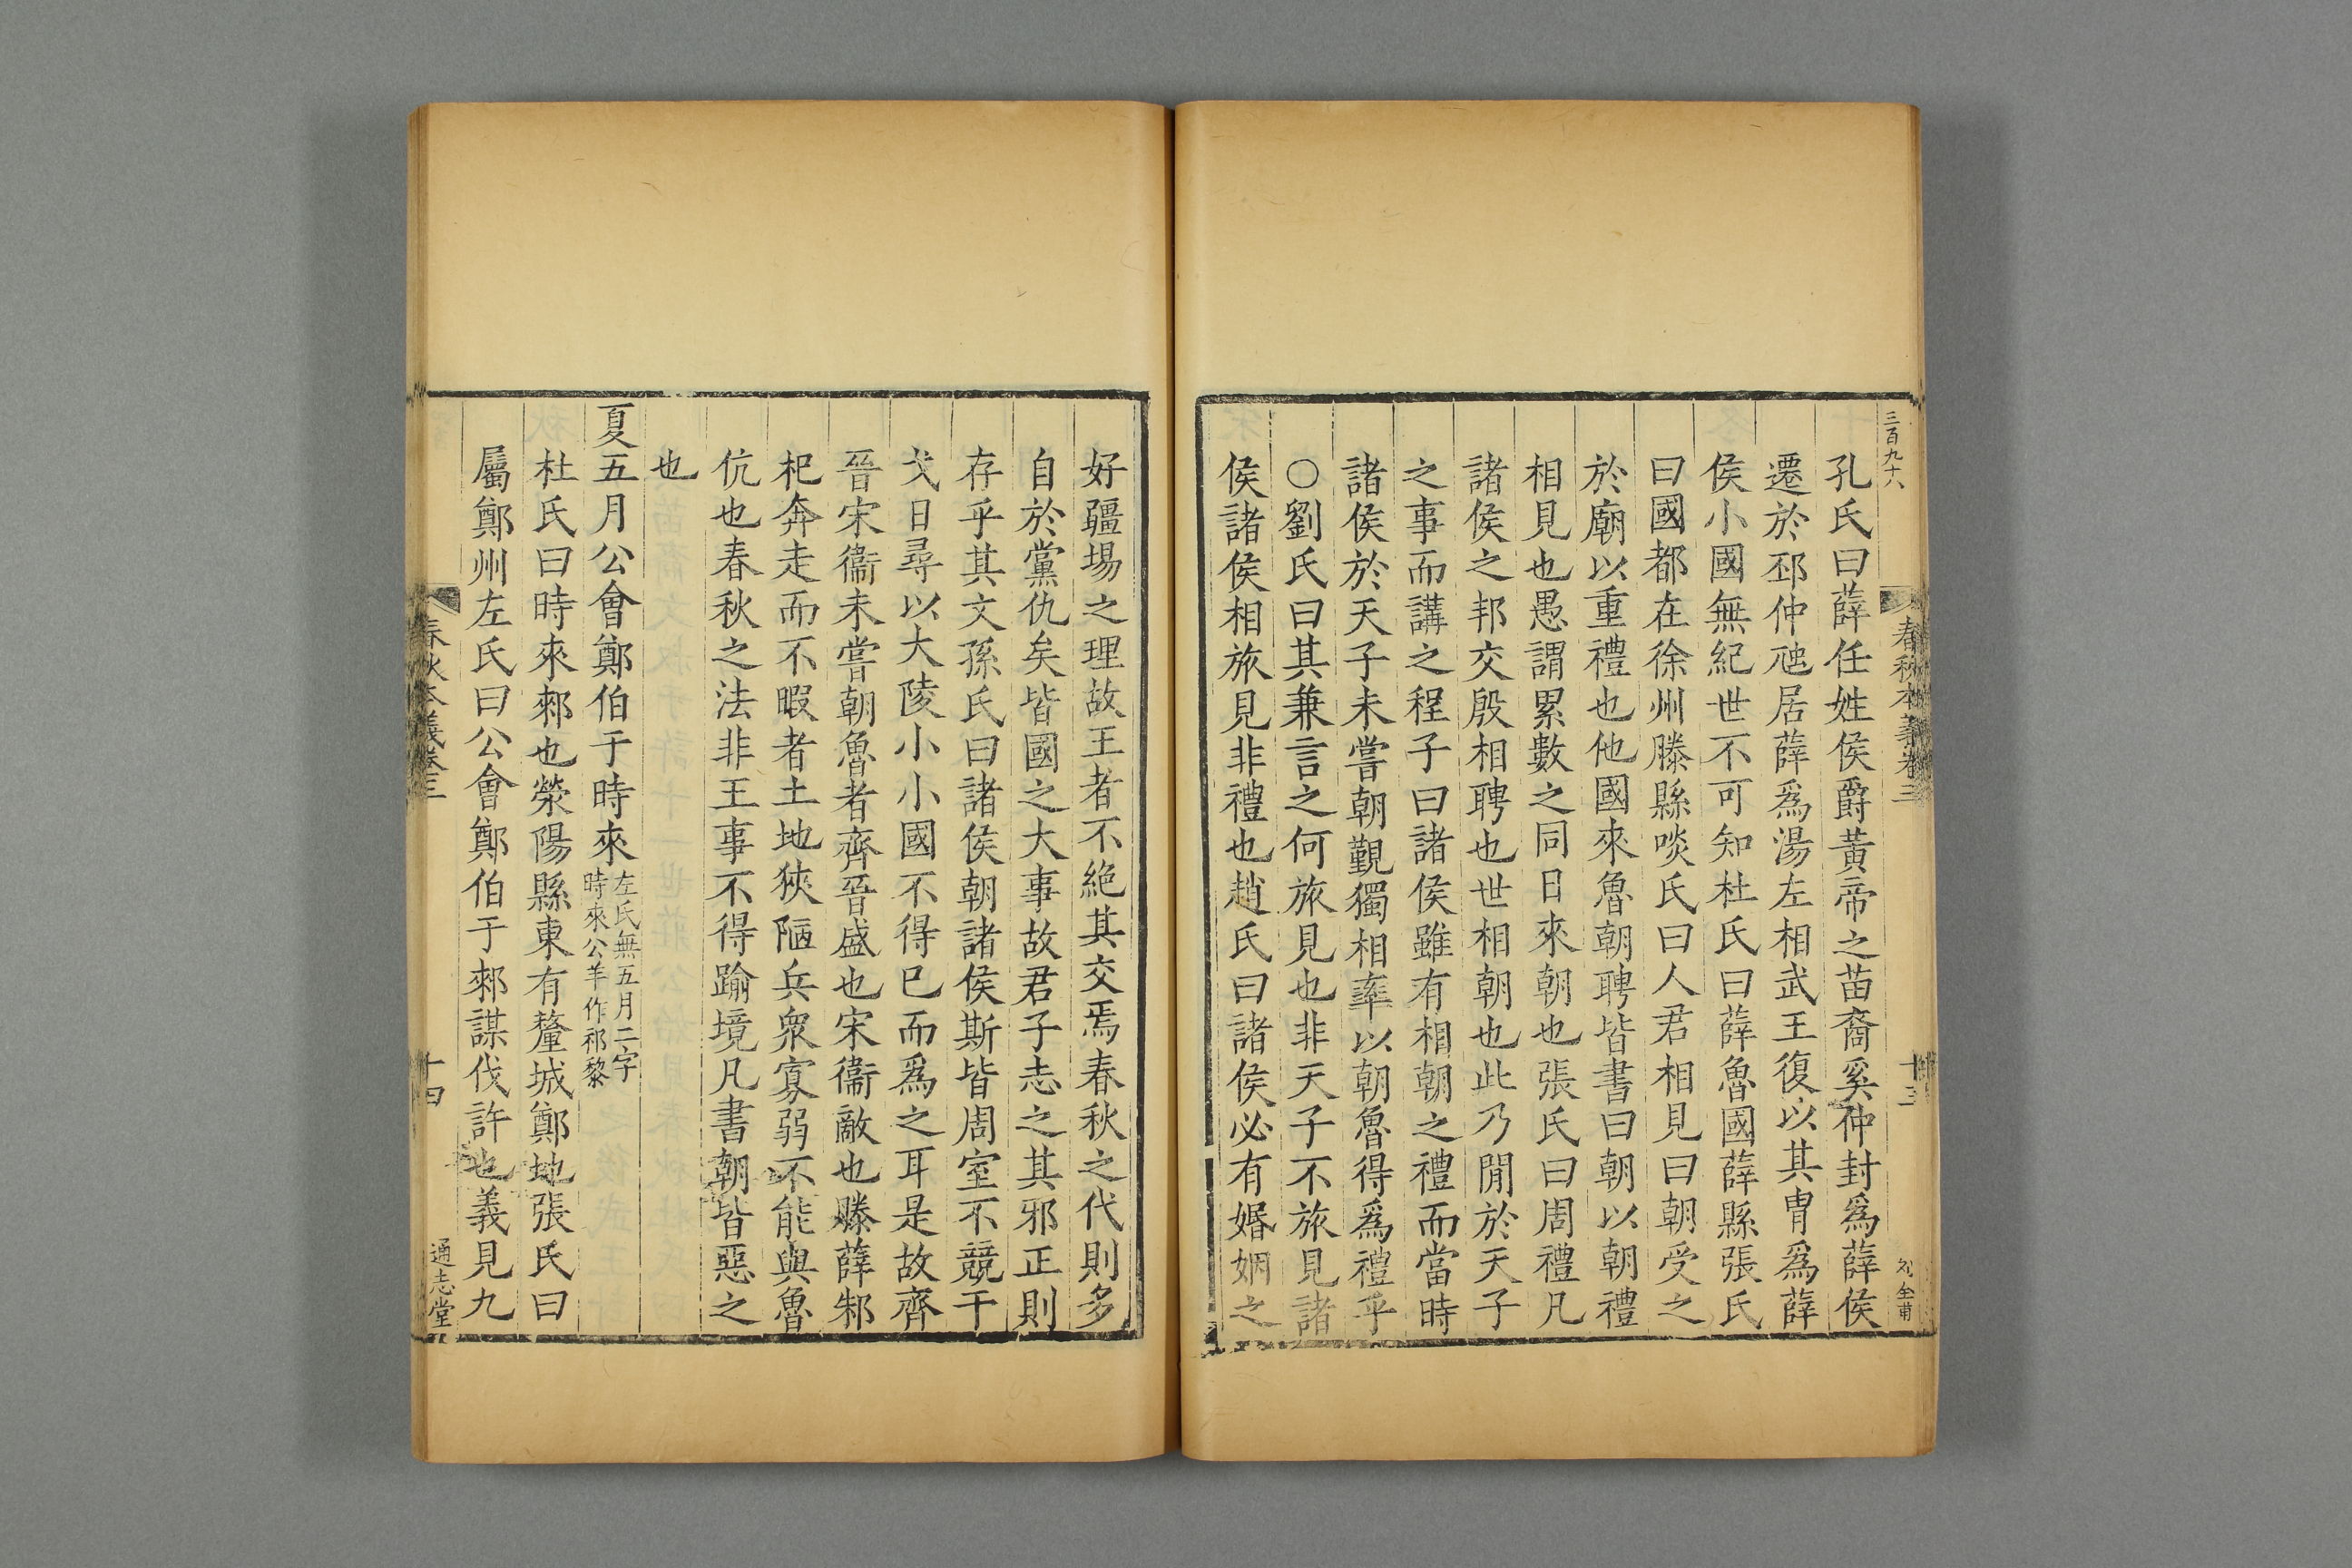 三百九十八
春秋本義卷三
十三
孔氏曰薛任姓侯爵黃帝之苗裔奚仲封爲薛侯
遷於邳仲虺居薛爲湯左相武王復以其胄爲薛
侯小國無紀世不可知杜氏曰薛魯國薛縣張氏
曰國都在徐州滕縣啖氏曰人君相見曰朝受之
於廟以重禮也他國來魯朝聘皆書曰朝以朝禮
相見也愚謂累數之同日來朝也張氏曰周禮凡
諸侯之邦交殷相聘也世相朝也此乃閒於天子
之事而講之程子曰諸侯雖有相朝之禮而當時
諸侯於天子未嘗朝覲獨相率以朝魯得爲禮乎
○劉氏曰其兼言之何旅見也非天子不旅見諸
侯諸侯相旅見非禮也趙氏曰諸侯必有婚姻之
好疆埸之理故王者不絶其交焉春秋之代則多
自於黨仇矣皆國之大事故君子志之其邪正則
存乎其文孫氏曰諸侯朝諸侯斯皆周室不競干
戈日尋以大陵小小國不得已而爲之耳是故齊
晉宋衞未嘗朝魯者齊晉盛也宋衞敵也滕薛邾
杞奔走而不暇者土地狹陋兵衆寡弱不能與魯
伉也春秋之法非王事不得踰境凡書朝皆惡之
也
夏五月公會鄭伯于時來左氏無五月二字
時來公羊作祁黎
杜氏曰時來郲也滎陽縣東有釐城鄭地張氏曰
屬鄭州左氏曰公會鄭伯于郲謀伐許也義見九
春秋本義卷三
十四
通志堂